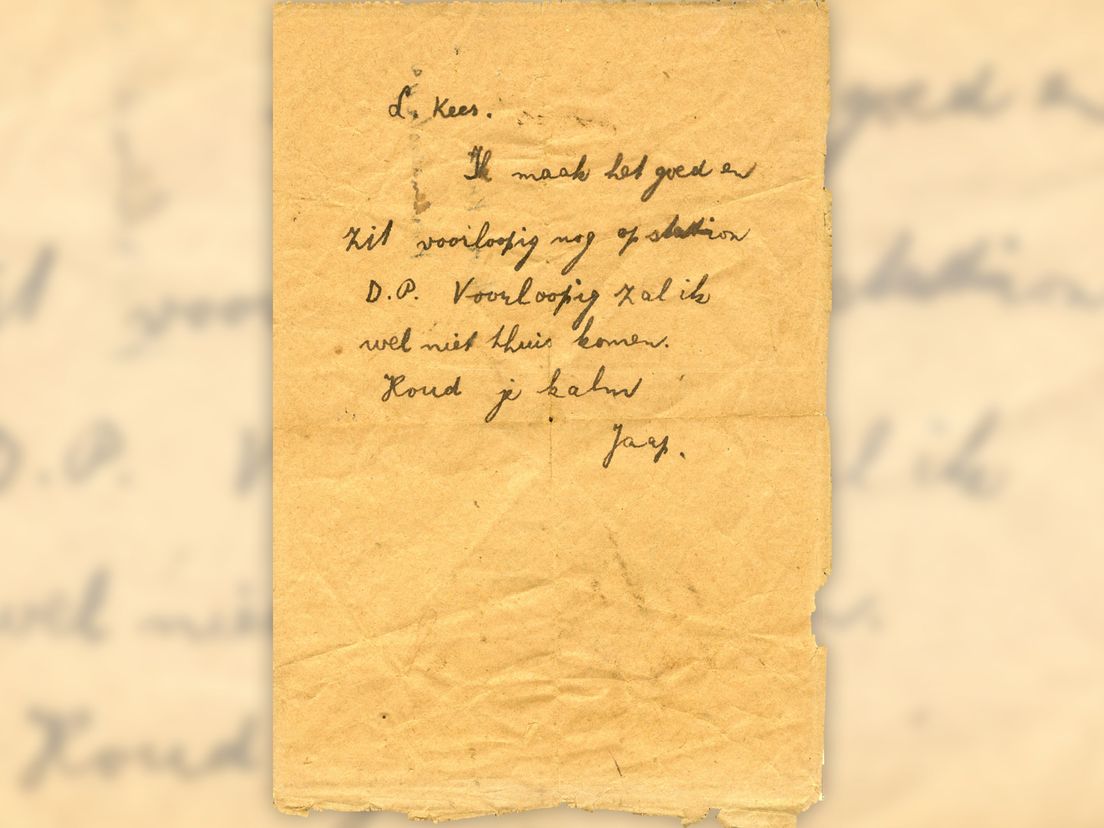 L. Kees.
Ik maak het goed en
zit voorloopig nog op station
D.P. Voorloopig zal ik
wel niet thuis komen.
Houd je kalm
Jaap.